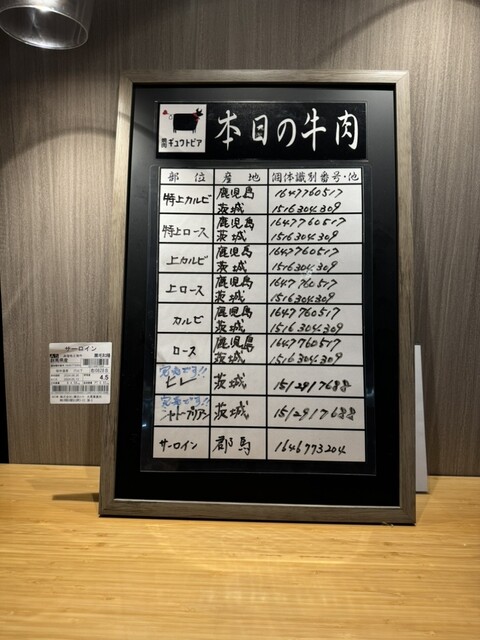 焼肉 ギュウトピア
本日の牛肉
部 位 産 地 個体識別番号・他
特上カルビ 鹿児島 1647760517
茨城 1516304309
特上ロース 鹿児島 1647760517
茨城 1516304309
上カルビ 鹿児島 1647760517
茨城 1516304309
上ロース 鹿児島 1647760517
茨城 1516304309
カルビ 鹿児島 1647760517
茨城 1516304309
ロース 鹿児島 1647760517
茨城 1516304309
完売です!!
ヒレ 茨城 1512917688
完売です!!
シャトーブリアン 茨城 1512917688
サーロイン 郡馬 1646773204
サーロイン
群馬県産
4.5